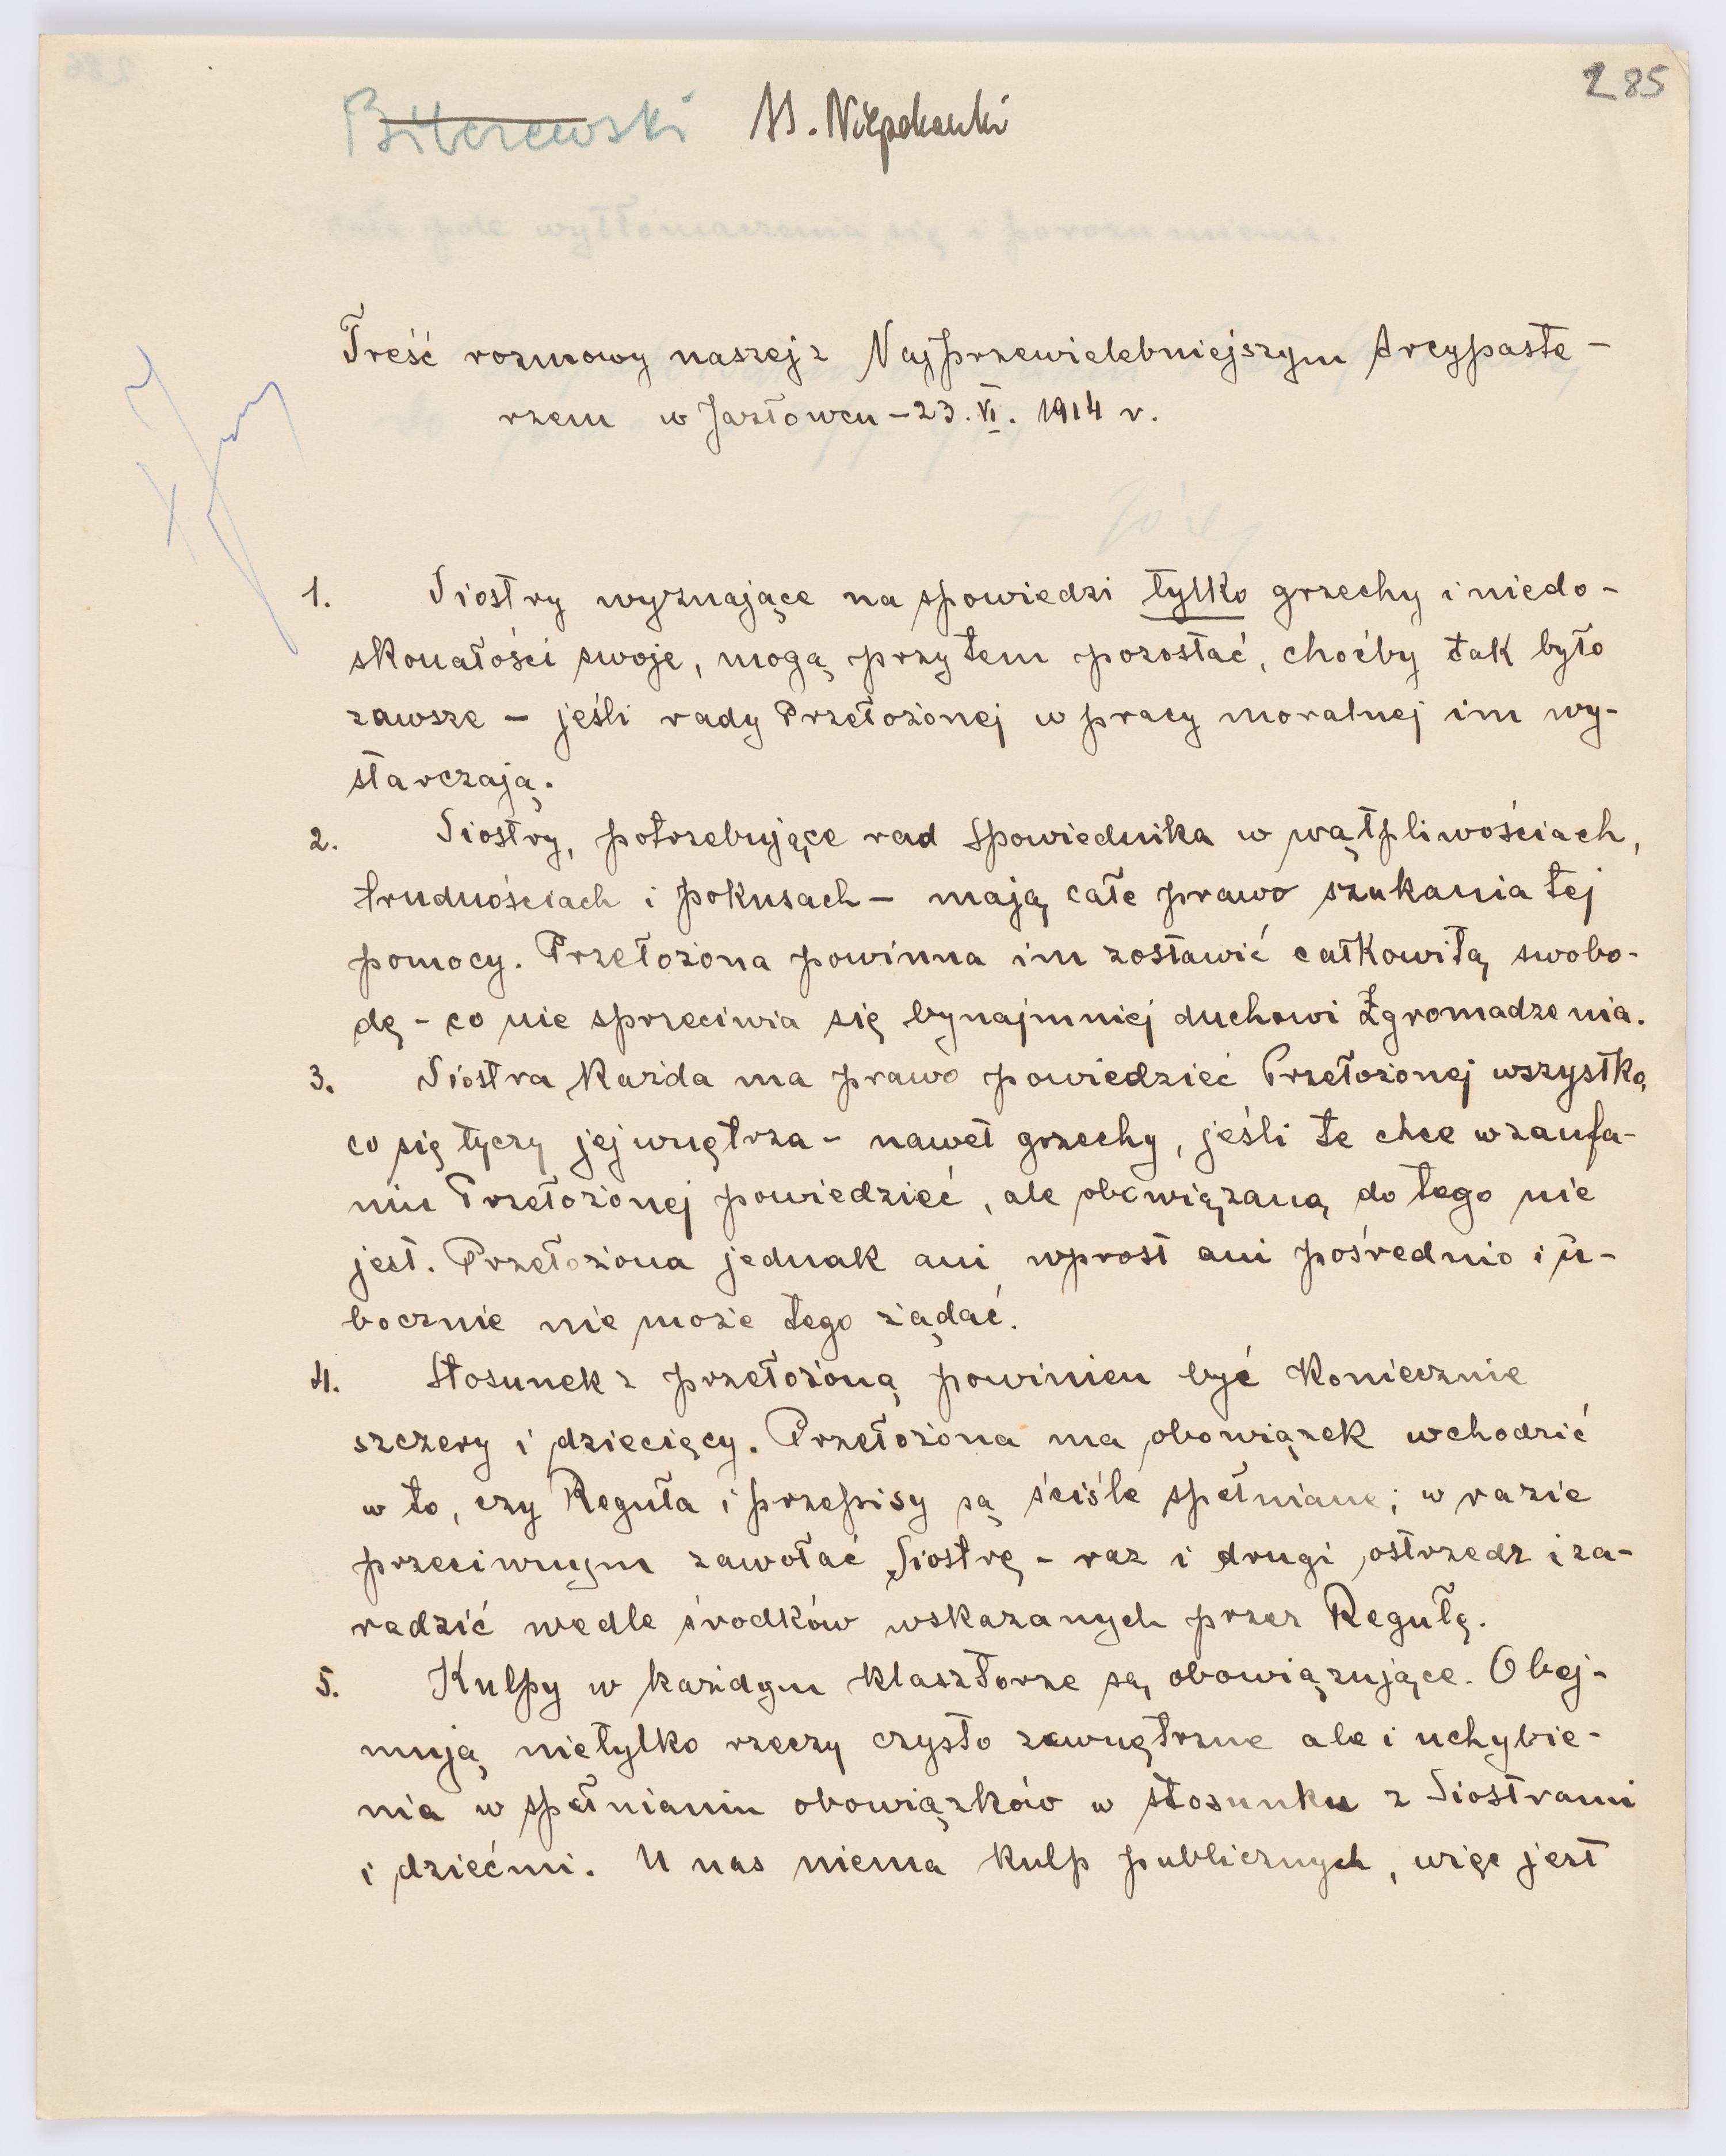 285
Bilczewski SS. Niepokalanki
Treść rozmowy naszej z Najprzewielebniejszym Arcypaste-
rzem w Jazłowcu – 23. VI. 1914 r.
1. Siostry wyznające na spowiedzi tylko grzechy i niedo-
skonałości swoje, mogą przytem pozostać, choćby tak było
zawsze – jeśli rady Przełożonej w pracy moralnej im wy-
starczają.
2. Siostry, potrzebujące rad Spowiednika w wątpliwościach,
trudnościach i pokusach – mają całe prawo szukania tej
pomocy. Przełożona powinna im zostawić całkowitą swobo-
dę – co nie sprzeciwia się bynajmniej duchowi Zgromadzenia.
3. Siostra każda ma prawo powiedzieć Przełożonej wszystko,
co się tyczy jej wnętrza – nawet grzechy, jeśli te chce w zaufa-
niu Przełożonej powiedzieć, ale obowiązaną do tego nie
jest. Przełożona jednak ani wprost ani pośrednio i u-
bocznie nie może tego żądać.
4. Stosunek z przełożoną powinien być koniecznie
szczery i dziecięcy. Przełożona ma obowiązek wchodzić
w to, czy Reguła i przepisy są ściśle spełniane; w razie
przeciwnym zawołać Siostrę – raz i drugi ostrzedz i za-
radzić wedle środków wskazanych przez Regułę.
5. Kulpy w każdym klasztorze są obowiązujące. Obej-
mują nietylko rzeczy czysto zewnętrzne ale i uchybie-
nia w spełnianiu obowiązków w stosunku z Siostrami
i dziećmi. U nas niema kulp publicznych, więc jest